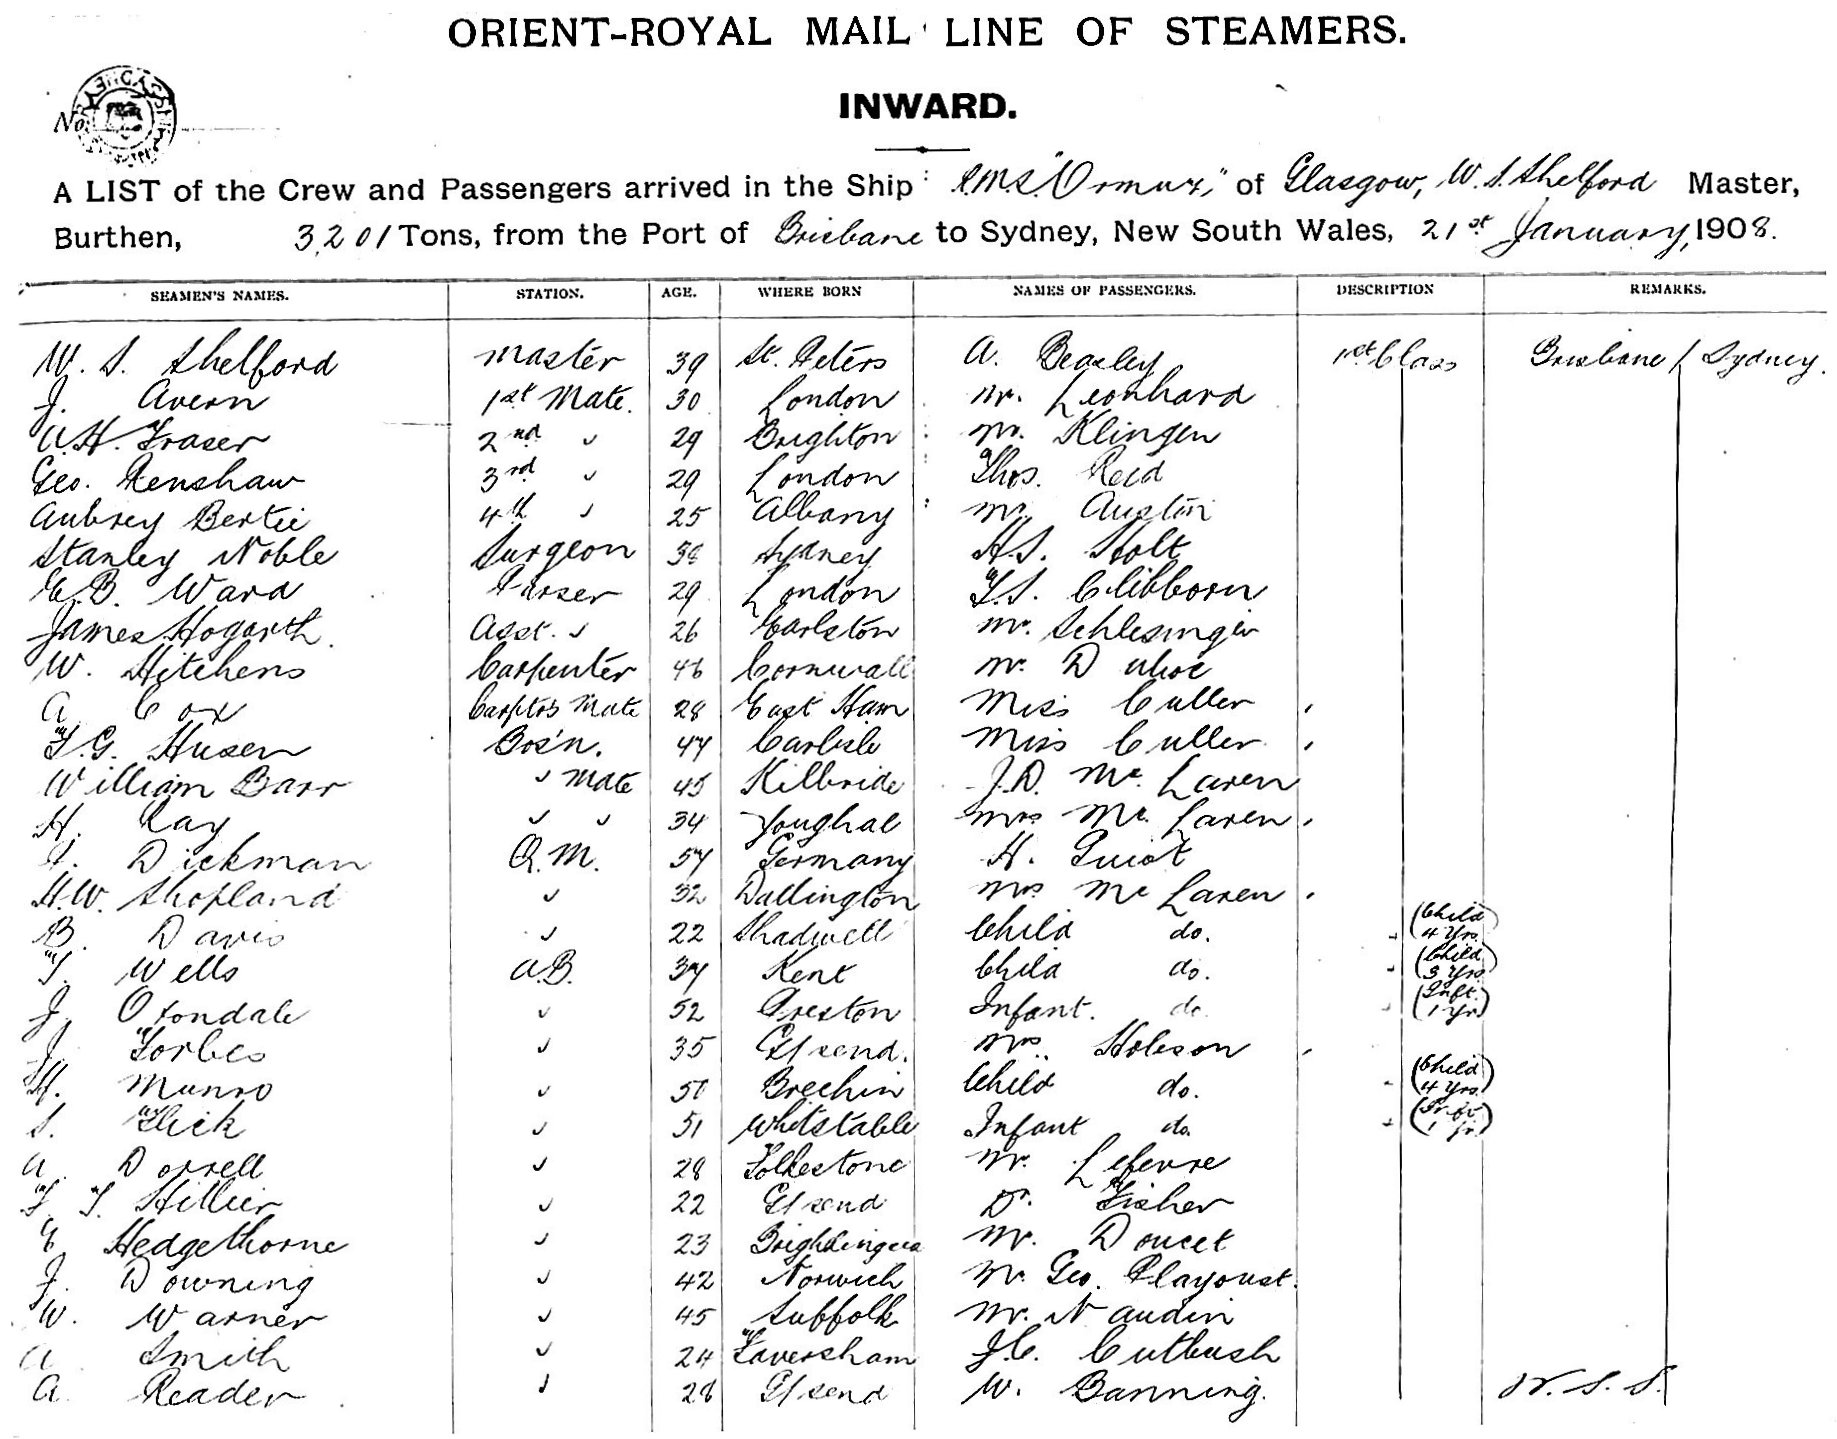 ORIENT-ROYAL MAIL LINE OF STEAMERS.
INWARD.
No.
A LIST of the Crew and Passengers arrived in the Ship RMS "Ormuz," of Glasgow, W. S. Shelford Master,
Burthen, 3,201 Tons, from the Port of Brisbane to Sydney, New South Wales, 21st January, 1908.
SEAMEN'S NAMES. STATION. AGE. WHERE BORN NAMES OF PASSENGERS. DESCRIPTION REMARKS.
W. S. Shelford Master 39 St. Peters A. Beasley 1st Class Brisbane / Sydney.
J. Avern 1st Mate. 30 London Mr. Leonhard
A.H. Fraser 2nd " 29 Brighton Mr. Klingen
Geo. Renshaw 3rd " 29 London Thos. Reid
Aubrey Bertie 4th " 25 Albany Mr. Austin
Stanley Noble Surgeon Sydney H.S. Holt
E.B. Ward Purser 29 London F.S. Clibborn
James Hogarth. Asst. " 26 Earlston Mr. Schlesinger
W. Hitchens Carpenter 46 Cornwall Mr.
A. Cox Carptr's Mate 28 East Ham Miss Culler
F.G. Husen Bos'n. 47 Carlisle Miss Culler
William Barr " Mate 45 Kilbride J.D. Mc Laren
H. Ray " " 34 Youghal Mrs Mc Laren
Dickman Q.M. 57 Germany H. Guiot
H.W. Shopland " 32 Dallington Mrs Mc Laren
B. Davis " 22 Shadwell Child do. " (Child 4 Yrs.)
T. Wells A.B. 37 Kent Child do. " (Child 3 Yrs)
J. Oxondale " 52 Preston Infant. do. " (Inft. 1 Yr)
J. Forbes " 35 G'send. Mrs. Hobson
H. Munro " 50 Brechin Child do. " (Child 4 Yrs)
S. Flick " 51 Whitstable Infant do. " (Inft 1 Yr.)
A. Dorrell " 28 Folkestone Mr. Lefevre
F. T. Hillier " 22 G'send Dr. Fisher
E Hedgethorne " 23 Brightlingsea Mr. Doucet
J. Downing " 42 Norwich Mr. Geo. Playoust.
W. Warner " 45 Suffolk Mr. Naudin
A. Smith " 24 Faversham J.C. Cutbush
A. Reader " 28 G'send W. Banning. W. S. S.